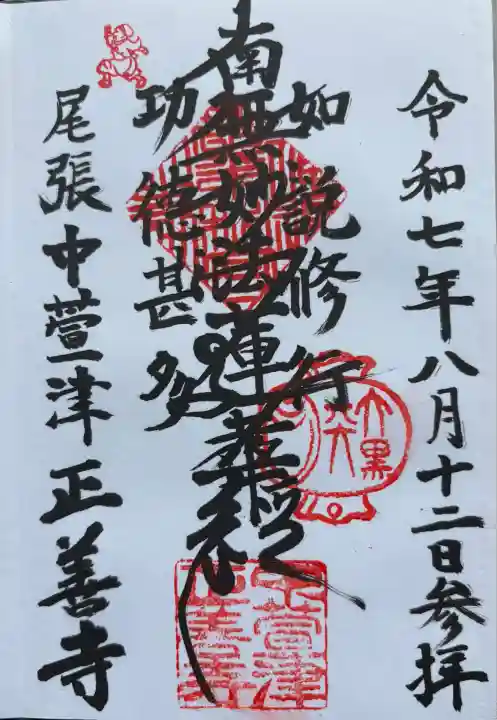 令和七年八月十二日参拝
如説修行
南無妙法蓮華経
功徳甚多
尾張中萱津 正善寺
大黒天